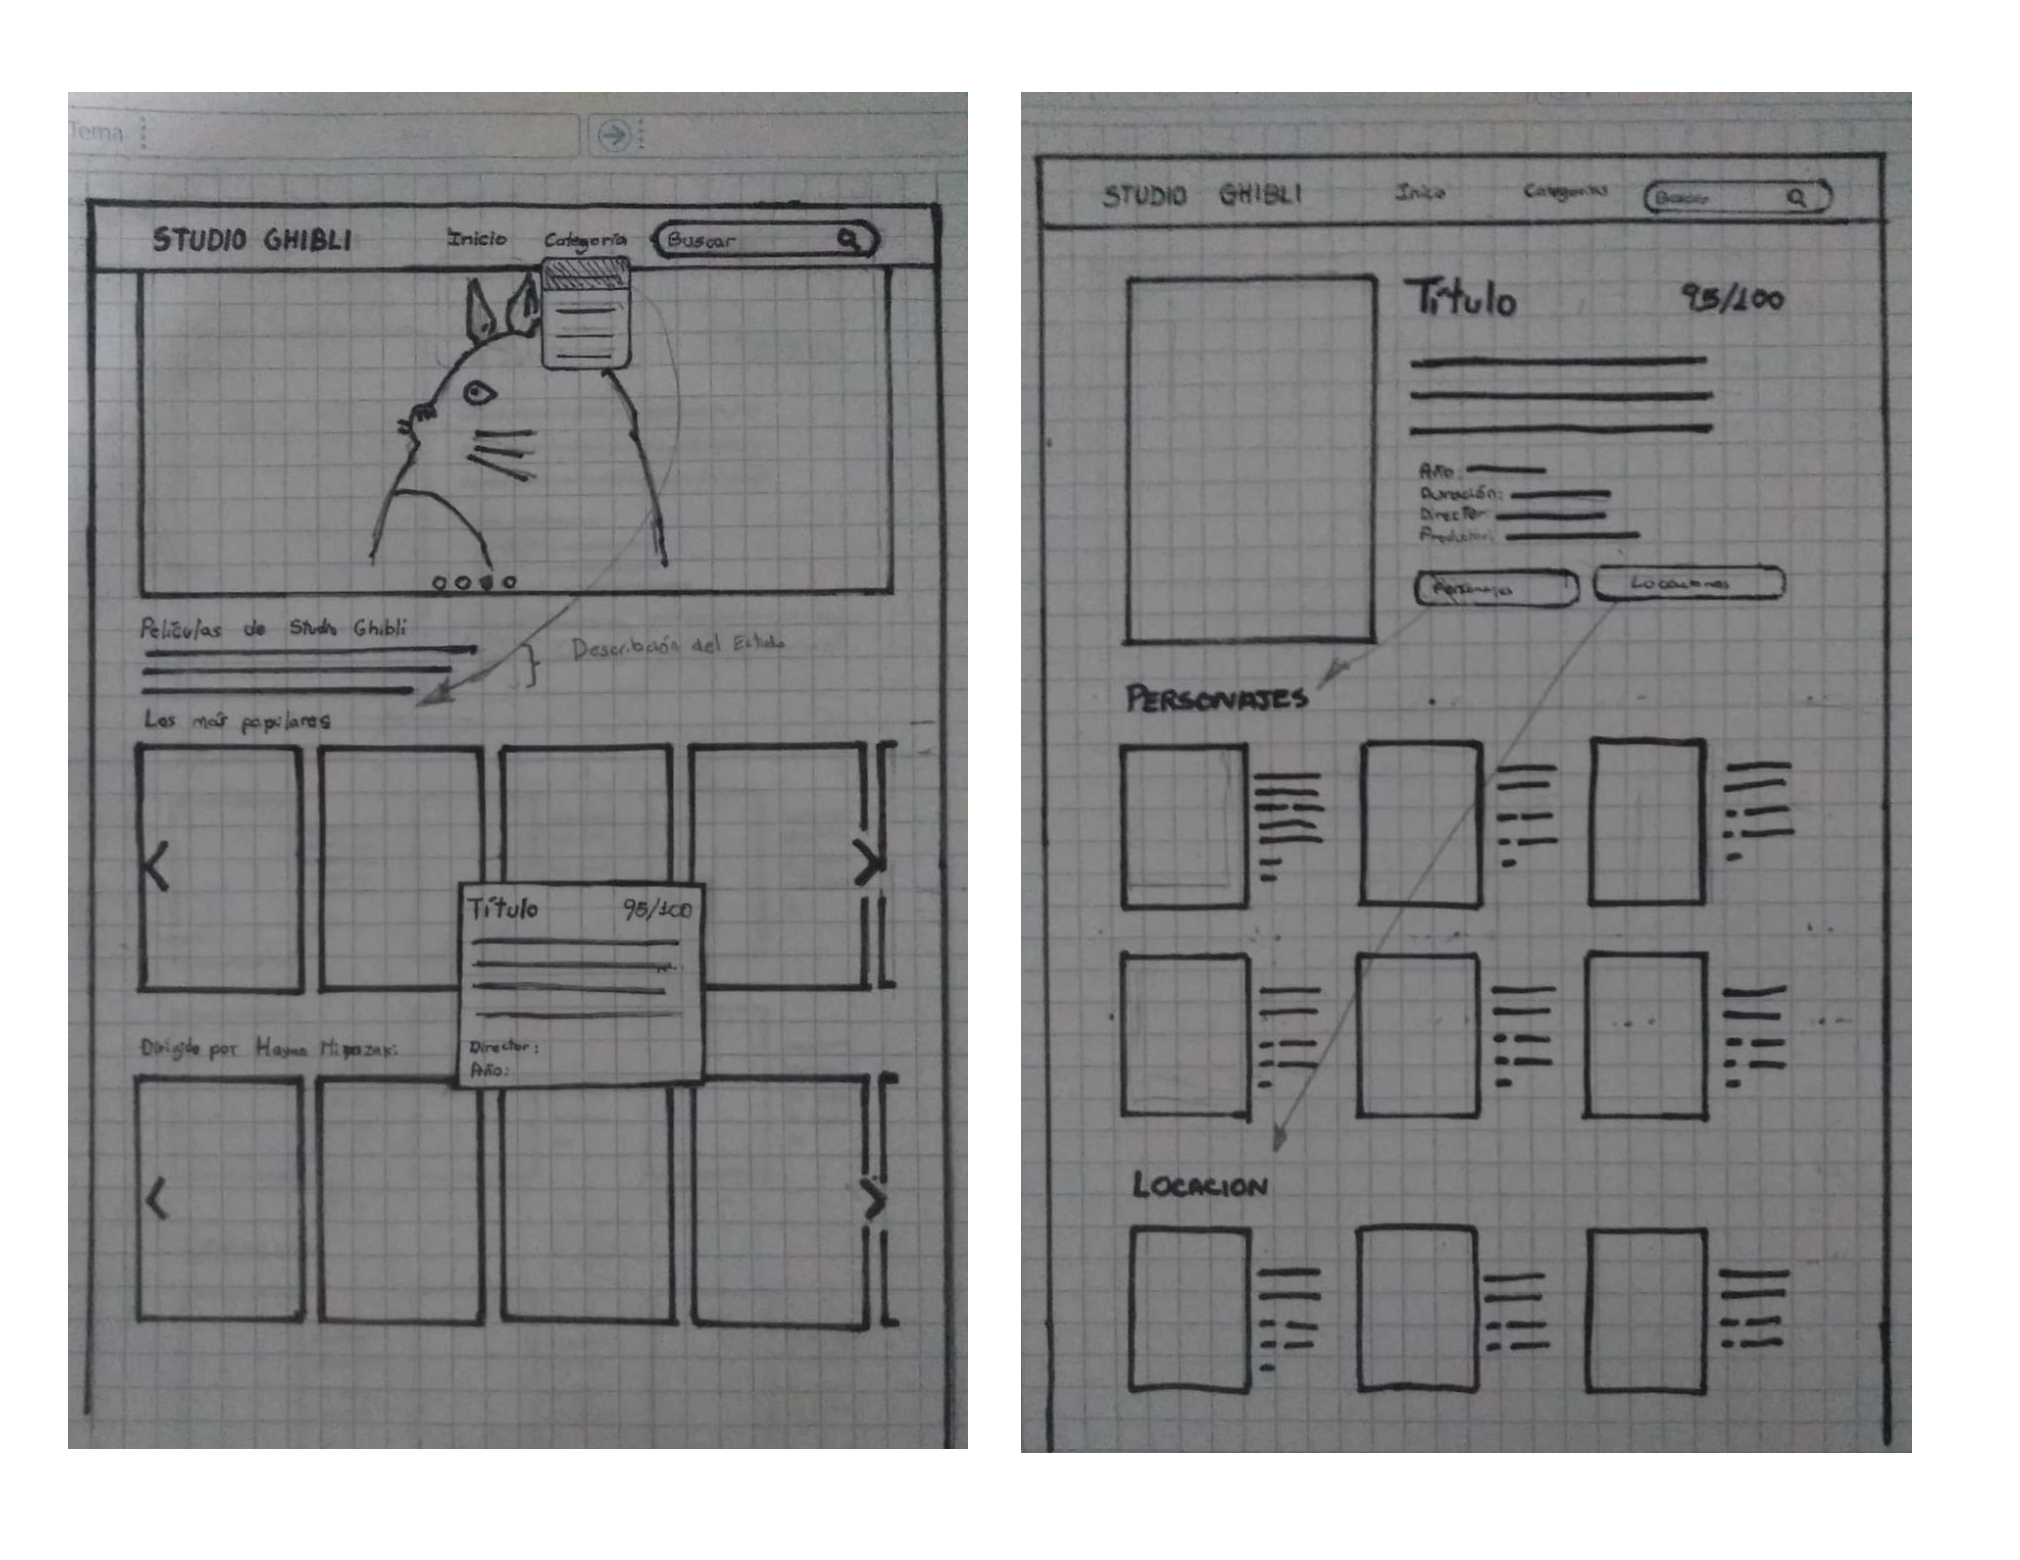 Tema
STUDIO GHIBLI Inicio Categoría Buscar
Películas de Studio Ghibli
Describción del Estudo
Los más populares
Título 95/100
Director:
Año:
Dirigido por Hayao Miyazaki
STUDIO GHIBLI Inicio Categorías Buscar
Título 95/100
Año:
Duración:
Director:
Productor:
Personajes Locaciones
PERSONAJES
LOCACION